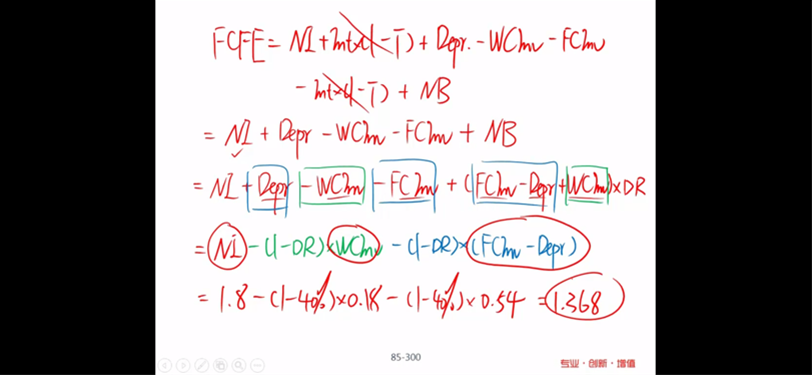 FCFE = NI + Int×(1-T) + Depr. - WCInv - FCInv
- Int×(1-T) + NB
= NI + Depr - WCInv - FCInv + NB
= NI + Depr - WCInv - FCInv + (FCInv - Depr + WCInv)×DR
= NI - (1-DR)×WCInv - (1-DR)×(FCInv - Depr)
= 1.8 - (1-40%)×0.18 - (1-40%)×0.54 = 1.368
85-300
专业·创新·增值